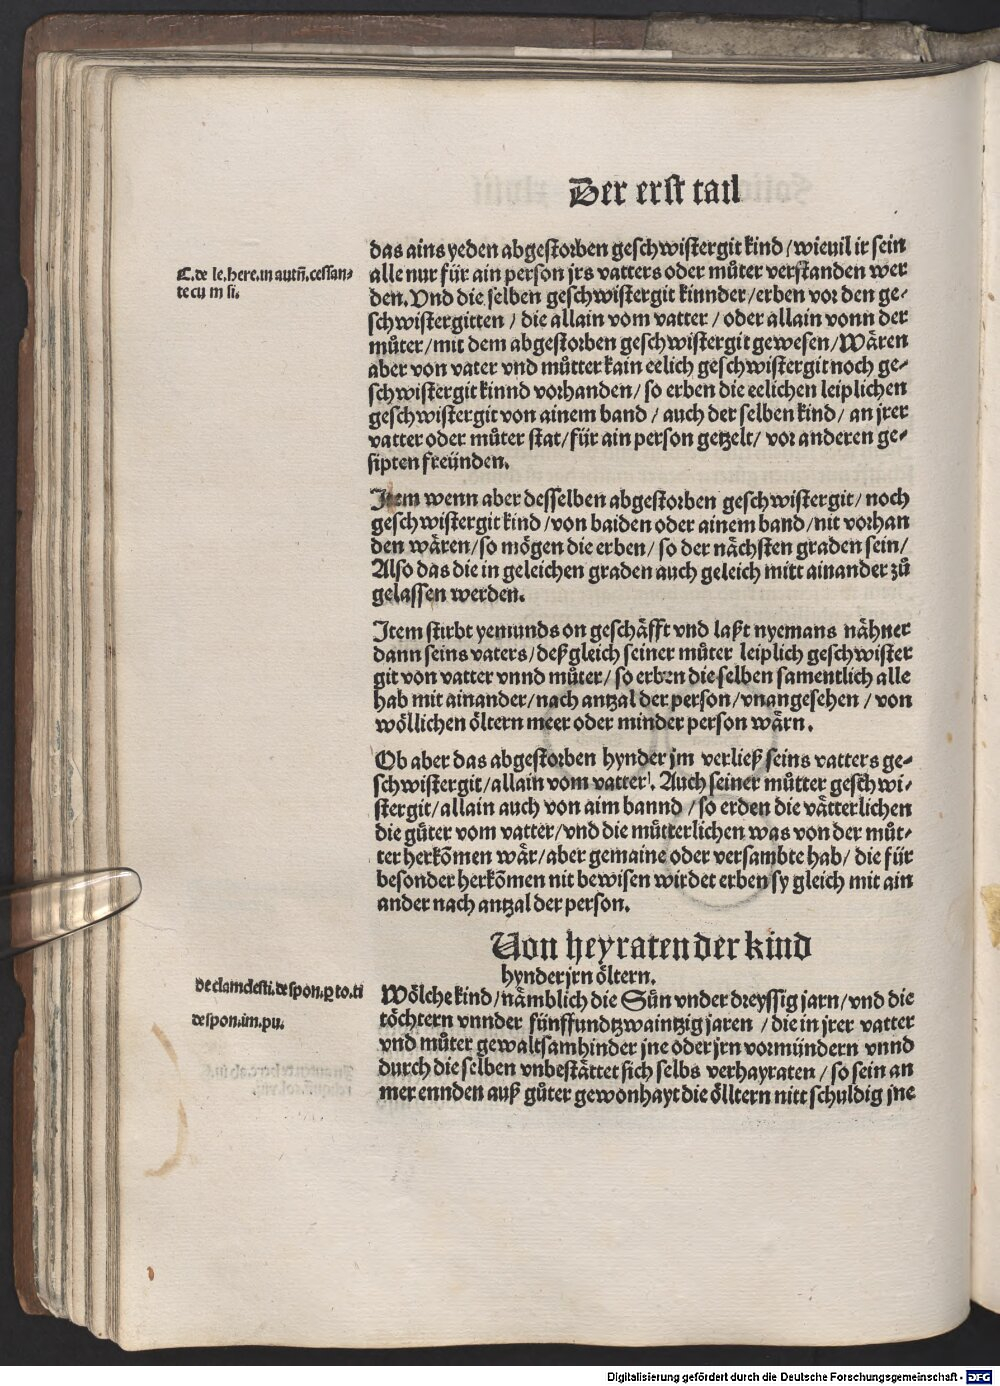 Der erst tail
das ains yeden abgestorben geschwistergit kind / wieuil ir sein
C. de le. here. in autñ. cessan-
te cu m si.
alle nur für ain person jrs vatters oder můter verstanden wer
den. Vnd die selben geschwistergit kinnder / erben vor den ge-
schwistergitten / die allain vom vatter / oder allain vonn der
můter / mit dem abgestorben geschwistergit gewesen / Wären
aber von vater vnd můtter kain eelich geschwistergit noch ge-
schwistergit kinnd vorhanden / so erben die eelichen leiplichen
geschwistergit von ainem band / auch der selben kind / an jrer
vatter oder můter stat / für ain person getzelt / vor anderen ge-
sipten freünden.
Item wenn aber desselben abgestorben geschwistergit / noch
geschwistergit kind / von baiden oder ainem band / nit vorhan
den wären / so mögen die erben / so der nächsten graden sein /
Also das die in geleichen graden auch geleich mitt ainander zů
gelassen werden.
Item stirbt yemunds on geschäfft vnd laßt nyemans nähner
dann seins vaters / deßgleich seiner můter leiplich geschwister
git von vatter vnnd můter / so erben die selben samentlich alle
hab mit ainander / nach antzal der person / vnangesehen / von
wöllichen öltern meer oder minder person wärn.
Ob aber das abgestorben hynder jm verließ seins vatters ge-
schwistergit / allain vom vatter. Auch seiner můtter geschwi-
stergit / allain auch von aim bannd / so erden die vätterlichen
die gůter vom vatter / vnd die můtterlichen was von der můt-
ter herkõmen wär / aber gemaine oder versambte hab / die für
besonder herkõmen nit bewisen wirdet erben sy gleich mit ain
ander nach antzal der person.
Von heyraten der kind
hynder jrn öltern.
De clamdesti. de spon. ꝑ to. ti
de spon. im. pu.
Wölche kind / nämblich die Sün vnder dreyssig jarn / vnd die
töchtern vnnder fünffundtzwaintzig jaren / die in jrer vatter
vnd můter gewaltsam hinder jne oder jrn vormündern vnnd
durch die selben vnbestättet sich selbs verhayraten / so sein an
mer ennden auß gůter gewonhayt die ölltern nitt schuldig jne
Digitalisierung gefördert durch die Deutsche Forschungsgemeinschaft - DFG